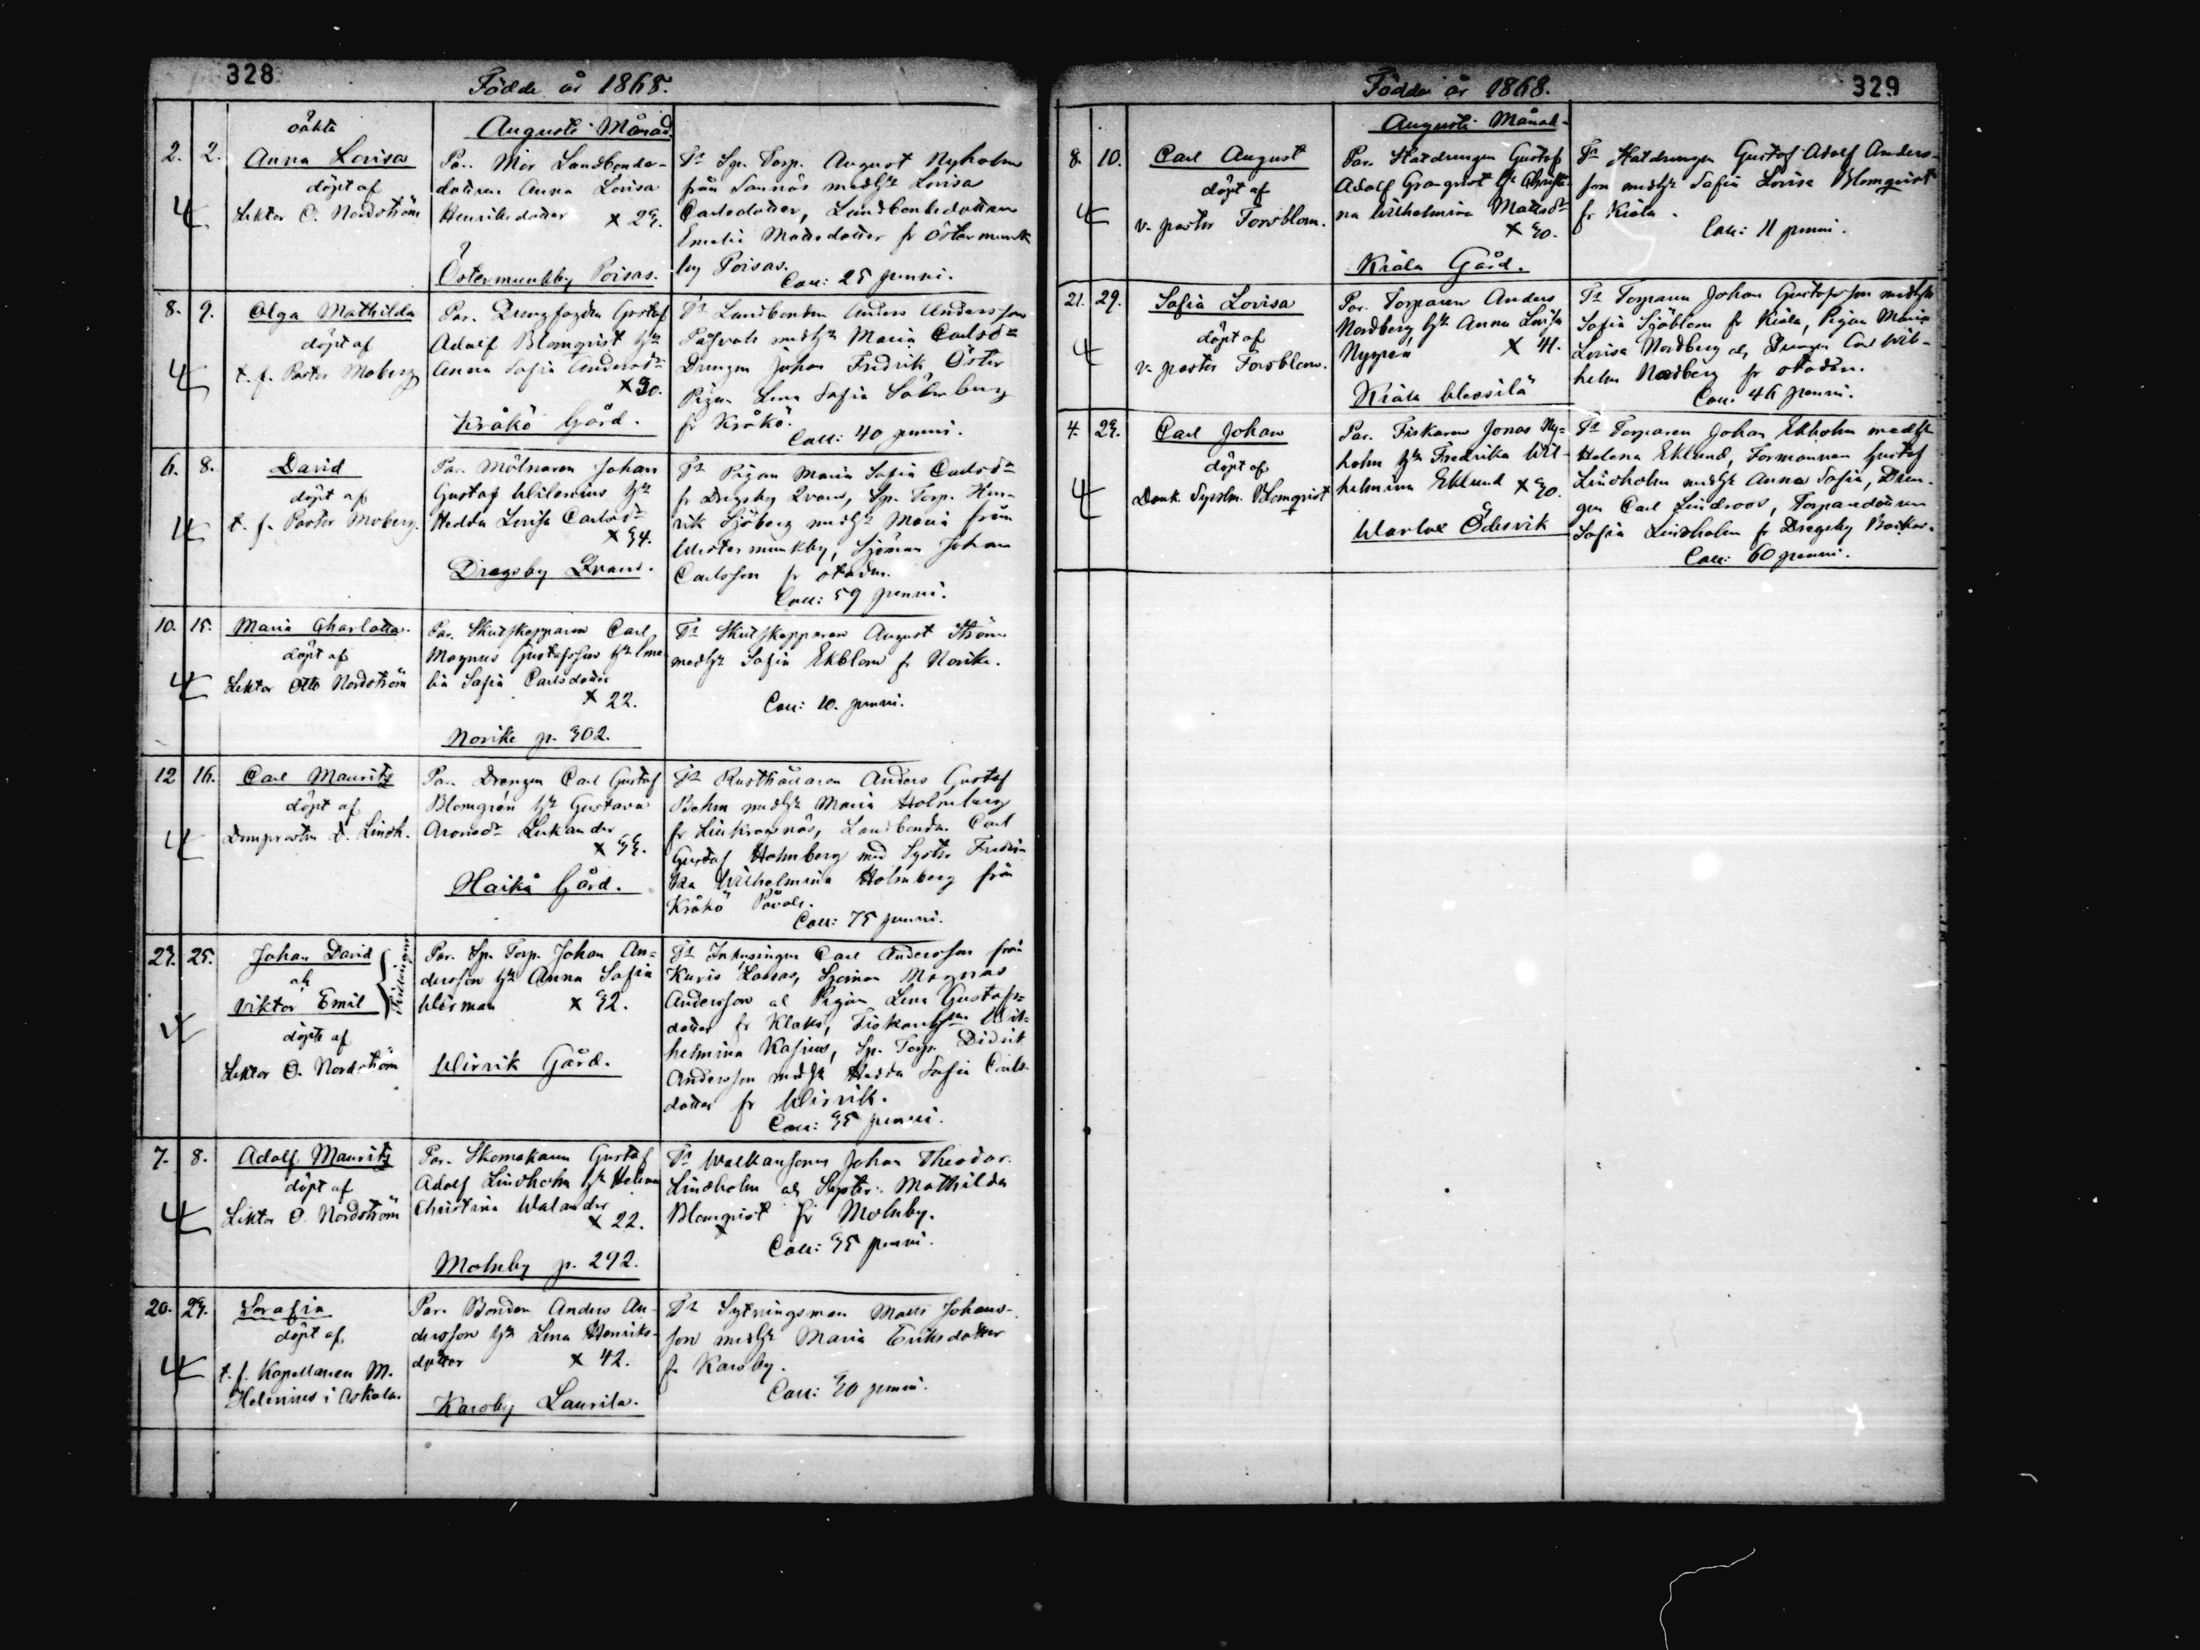 328
Födde år 1868.
Augusti Månad.
oäkta
2. 2. Anna Lovisa
döpt af
Lektor O. Nordström
Par. Mör Landbonde-
dottren Anna Lovisa
Henriksdotter x 23.
Östermunkby Poisas.
Tr Sp. Torp. August Nyholm
från Sannäs medhr Lovisa
Carlsdotter, Landbondedottren
Emelie Mattsdotter fr Östermunk
by Poisas.
Coll: 25 penni.
8. 9. Olga Mathilda
döpt af
t. f. Pastor Moberg
Par. Drengfogden Gustaf
Adolf Blomqvist hr
Anna Sofia Andersdr
x 30.
Kråkö Gård.
Tr Landbonden Anders Andersson
medhr Maria Carlsdr
Drengen Johan Fredrik Öster
Pigan Lena Sofia Söderberg
fr Kråkö.
Coll: 40 penni.
6. 8. David
döpt af
t. f. Pastor Moberg.
Par. Mölnaren Johan
Gustaf Wilenius hr
Hedda Lovisa Carlsdr
x 34.
Dregsby Qvarn.
Tr Pigan Maria Sofia Carlsdr
fr Dregsby Qvarn, Sp. Torp. Hen-
rik Sjöberg medhr Maria från
Westermunkby, Sjöman Johan
Carlsson fr staden.
Coll: 59 penni.
10. 15. Maria Charlotta.
döpt af
Lektor Otto Nordström
Par. Skutskepparen Carl
Magnus Gustafsson hr Ema
lia Sofia Carlsdotter
x 22.
Norike p. 302.
Tr Skutskepparen August Ström
medhr Sofia Ekblom fr Norike.
Coll: 10. penni.
12 16. Carl Mauritz
döpt af
Domprosten D. Lindh.
Par. Drengen Carl Gustaf
Blomgrén hr Gustava
Aronsdr Lekander
x 33.
Haikå Gård.
Tr Rusthållaren Anders Gustaf
Behm medhr Maria Holmberg
fr Linkroisnäs, Landbonden Carl
Gustaf Holmberg med Syster Fredri-
ka Wilhelmina Holmberg från
Kråkö Påvals.
Coll: 75 penni.
23. 25. Johan David
ok
Viktor Emil
Tvillingar
döpte af
Lektor O. Nordström
Par. Sp. Torp. Johan An-
dersson hr Anna Sofia
Wirman x 32.
Wirvik Gård.
Tr Inhysingen Carl Andersson från
Kuris Lassas, Sjöman Magnus
Andersson ok Pigan Lena Gustafs-
dotter fr Klakö, Fiskarehn Wil-
helmina Kasius, Sp. Torp. Didrik
Andersson medhr Hedda Sofia Carls-
dotter fr Wirvik.
Coll: 35 penni.
7. 8. Adolf Mauritz
döpt af
Lektor O. Nordström
Par. Skomakaren Gustaf
Adolf Lindholm hr Helena
Christina Walander
x 22.
Molnby p. 292.
Tr Walkaresonen Johan Theodor
Lindholm ok Syster Mathilda
Blomqvist fr Molnby.
Coll: 35 penni.
20. 23. Serafia
döpt af
t. f. Kapellanen M.
Helenius i Askola.
Par. Bonden Anders An-
dersson hr Lena Henriks-
dotter x 42.
Karsby Laurila.
Tr Sytningsman Matts Johans-
son medhr Maria Eriksdotter
fr Karsby.
Coll: 30 penni.
Födde år 1868.
329
Augusti Månad.
8. 10. Carl August
döpt af
v. pastor Forsblom.
Par. Statdrengen Gustaf
Adolf Granqvist hr Christi-
na Wilhelmina Mattsdr
x 30.
Kiala Gård.
Tr Statdrengen Gustaf Adolf Anders-
son medhr Sofia Lovisa Blomqvist
fr Kiala.
Coll: 11 penni.
21. 29. Sofia Lovisa
döpt af
v. pastor Forsblom.
Par. Torparen Anders
Nordberg hr Anna Lovisa
Nygren x 41.
Kiala Wessilä
Tr Torparen Johan Gustafsson medhr
Sofia Sjöblom fr Kiala, Pigan Maria
Lovisa Nordberg ok Drengen Carl Wil-
helm Nordberg fr staden.
Coll: 46 penni.
4. 23. Carl Johan
döpt af
Domk. Sysslm. Blomqvist
Par. Fiskaren Jonas Ny-
holm hr Fredrika Wil-
helmina Eklund x 30.
Warlax Ödesvik
Tr Torparen Johan Ekholm medhr
Helena Eklund, Formannen Gustaf
Lindholm medhr Anna Sofia, Dren-
gen Carl Lindroos, Torparedottren
Sofia Lindholm fr Dregsby Backas.
Coll: 60 penni.